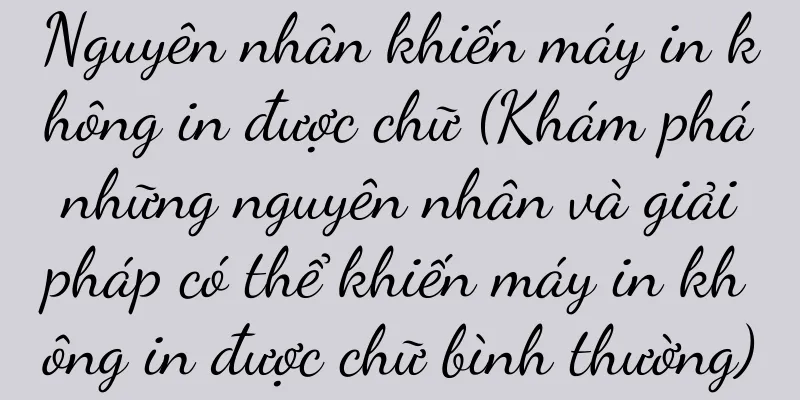 Nguyên nhân khiến máy in k
hông in được chữ (Khám phá
những nguyên nhân và giải
pháp có thể khiến máy in kh
ông in được chữ bình thường)